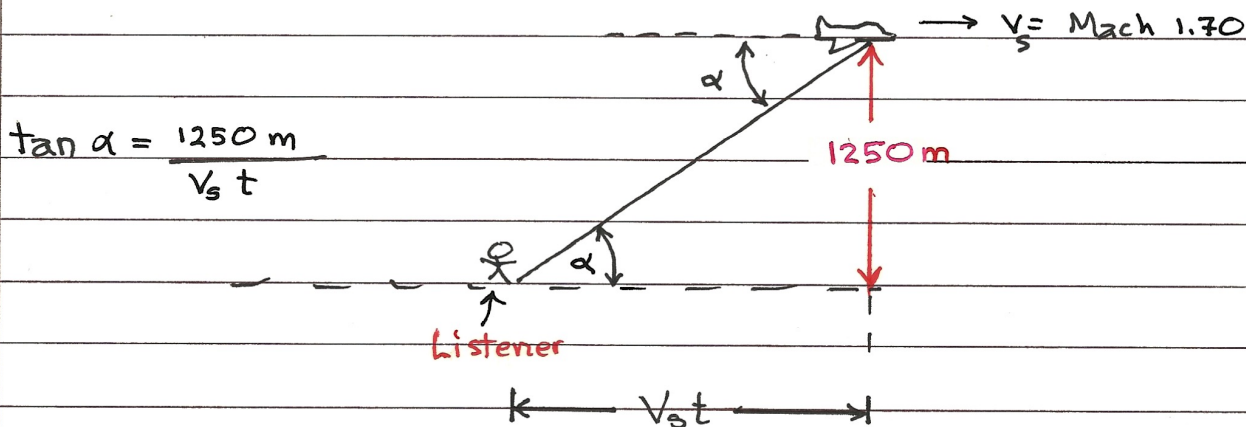 → Vs = Mach 1.70
α
tan α = 1250 m / Vs t
1250 m
α
Listener
Vs t